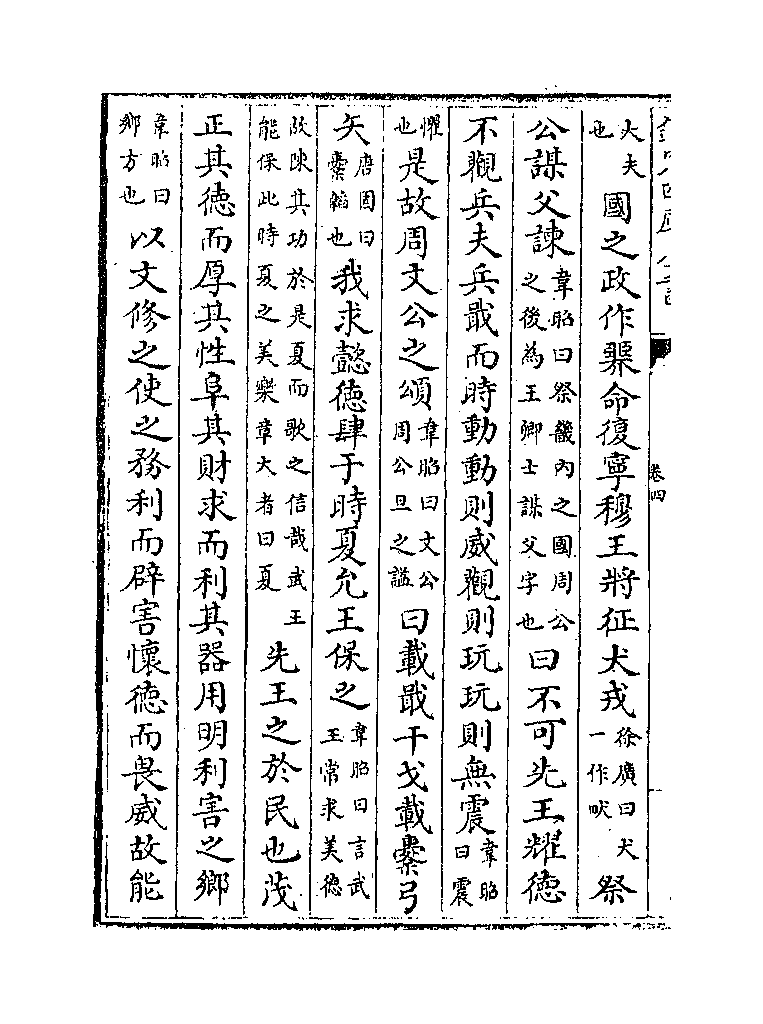 卷四
大夫也國之政作臩命復寧穆王將征犬戎徐廣曰犬一作畎祭
公謀父諫韋昭曰祭畿内之國周公之後為王卿士謀父字也曰不可先王耀德
不觀兵夫兵戢而時動動則威觀則玩玩則無震韋昭曰震
懼也是故周文公之頌韋昭曰文公周公旦之諡曰載戢干戈載櫜弓
矢唐固曰櫜韜也我求懿德肆于時夏允王保之韋昭曰言武王常求美德
故陳其功於是夏而歌之信哉武王能保此時夏之美樂章大者曰夏先王之於民也茂
正其德而厚其性阜其財求而利其器用明利害之鄉
韋昭曰鄉方也以文修之使之務利而辟害懷德而畏威故能